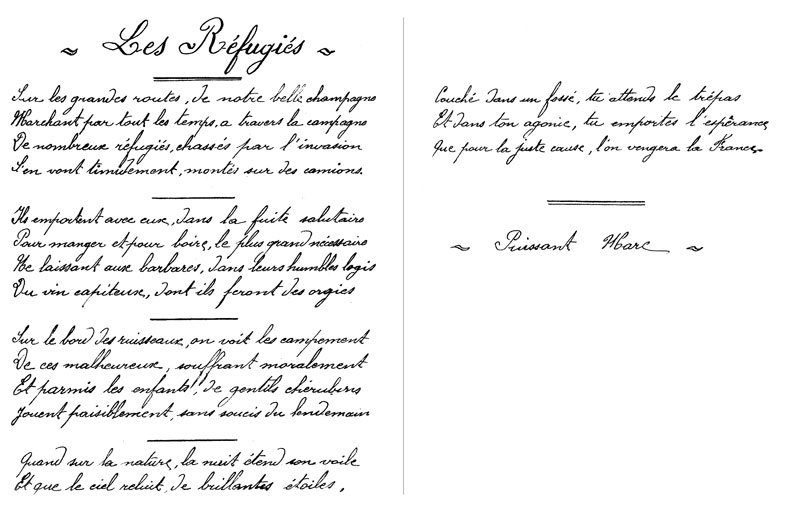 ~ Les Réfugiés ~
Sur les grandes routes, de notre belle champagne
Marchant par tout les temps, a travers la campagne
De nombreux réfugiés, chassés par l'invasion
S'en vont timidement, montés sur des camions.
Ils emportent avec eux, dans la fuite salutaire
Pour manger et pour boire, le plus grand nécessaire
Ne laissant aux barbares, dans leurs humbles logis
Du vin capiteux, dont ils feront des orgies
Sur le bord des ruisseaux, on voit les campement
De ces malheureux, souffrant moralement
Et parmis les enfants!, de gentils chérubins
Jouent paisiblement, sans soucis du lendemain
Quand sur la nature, la nuit étend son voile
Et que le ciel reluit, de brillantes étoiles.
Couché dans un fossé, tu attends le trépas
Et dans ton agonie, tu emportes l'espérance
Que pour la juste cause, l'on vengera la France
~ Puissant Marc ~